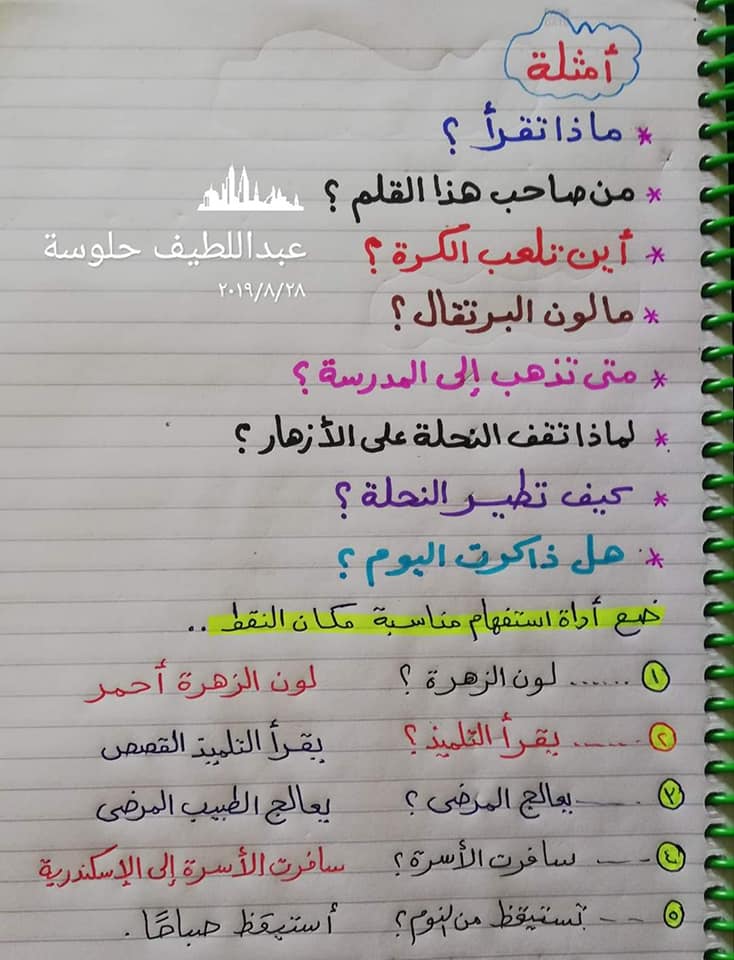 أمثلة
* ماذا تقرأ ؟
* من صاحب هذا القلم ؟
عبداللطيف حلوسة
* أين تلعب الكرة ؟
٢٠١٩/٨/٢٨
* ما لون البرتقال ؟
* متى تذهب إلى المدرسة ؟
* لماذا تقف النحلة على الأزهار ؟
* كيف تطير النحلة ؟
* هل ذاكرت اليوم ؟
ضع أداة استفهام مناسبة مكان النقط ..
١ ...... لون الزهرة ؟ لون الزهرة أحمر
٢ ...... يقرأ التلميذ ؟ يقرأ التلميذ القصص
٣ ...... يعالج المرضى ؟ يعالج الطبيب المرضى
٤ ---- سافرت الأسرة ؟ سافرت الأسرة إلى الإسكندرية
٥ ---- تستيقظ من النوم ؟ أستيقظ صباحًا .